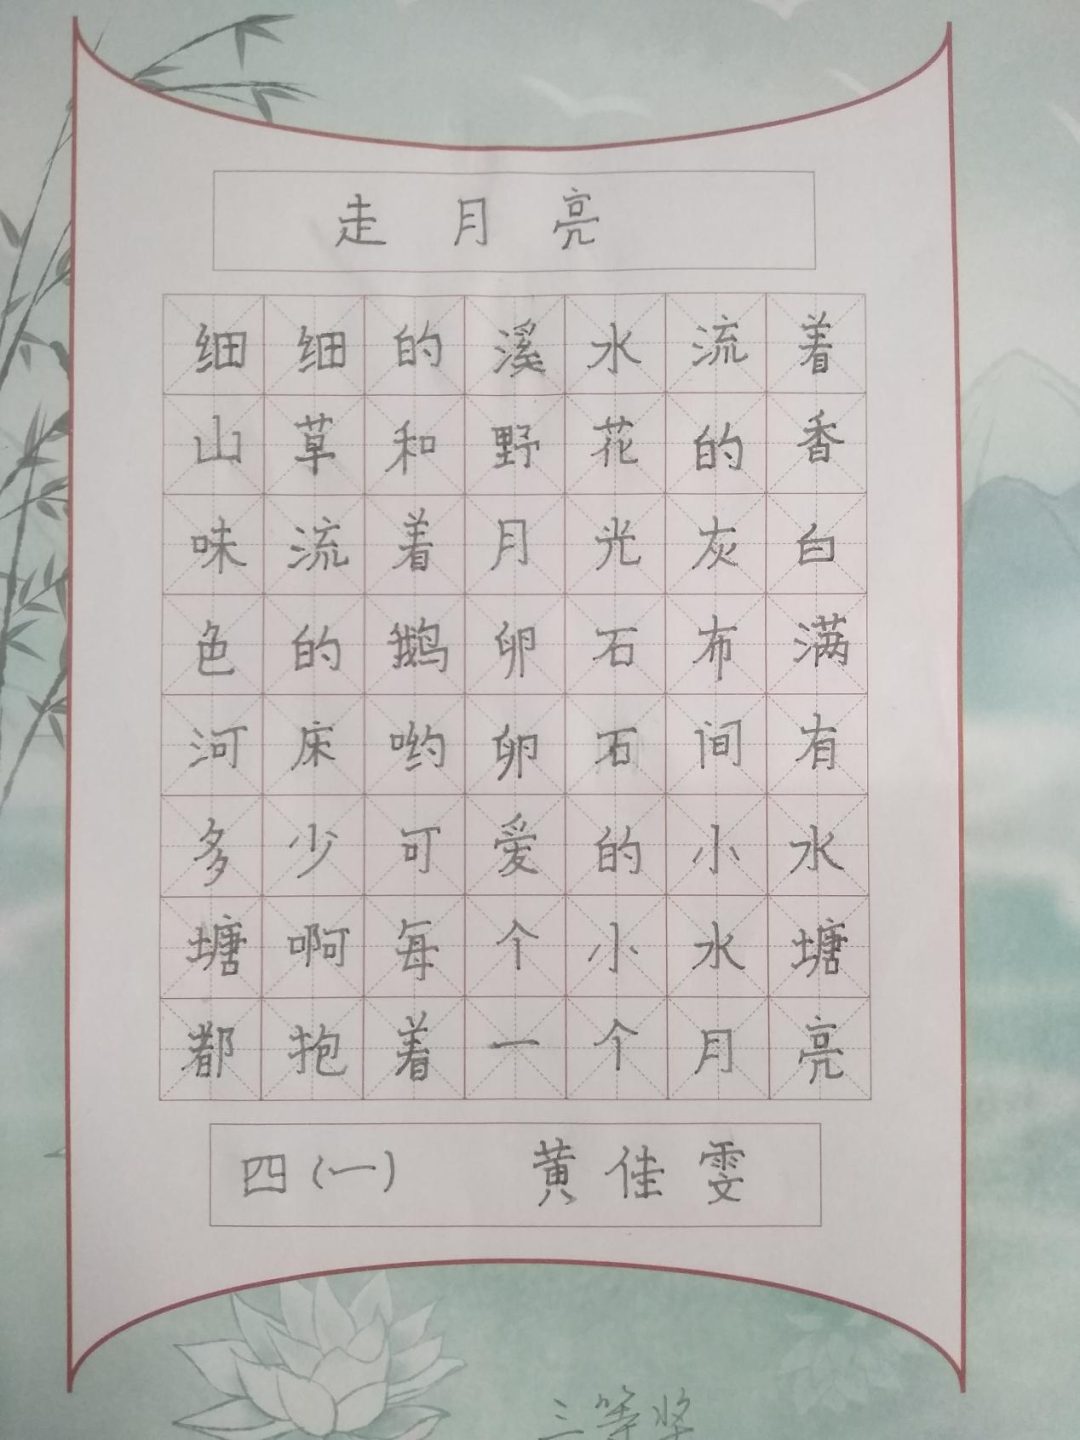 走月亮
细细的溪水流着
山草和野花的香
味流着月光灰白
色的鹅卵石布满
河床哟卵石间有
多少可爱的小水
塘啊每个小水塘
都抱着一个月亮
四(一) 黄佳雯
三等奖